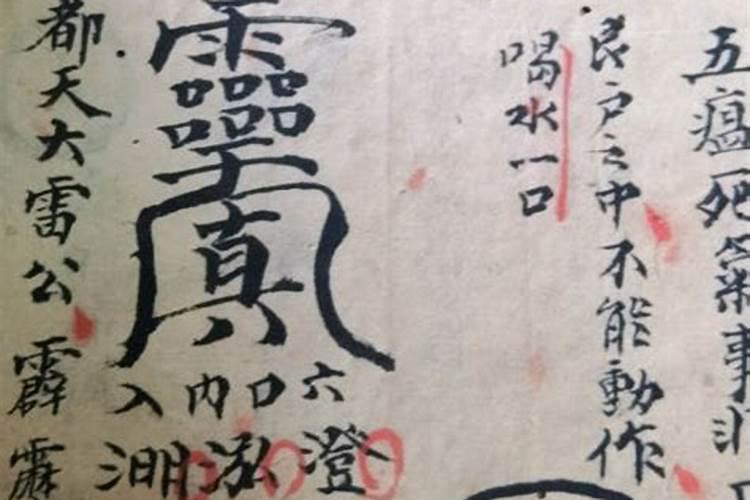 五瘟死氣事
艮户之中不能動作
喝水一口
真
六口内入
澄泓淜
都天大雷公霹